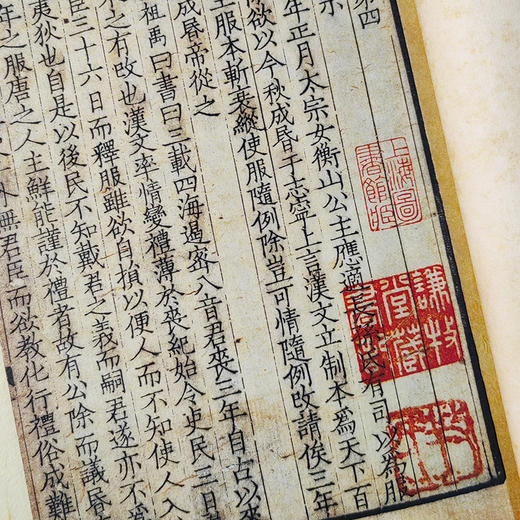 第四
年正月太宗女衡山公主應適長孫氏有司以為服
欲以今秋成昏于志寧上言漢文立制本為天下百
主服本斬衰縱使服隨例除豈可情隨例改請俟三年
成昏帝從之
祖禹曰書曰三載四海遏密八音君喪三年自古以來
之有改也漢文率情變禮薄於喪紀始令吏民三日
臣三十六日而釋服雖欲自損以便人而不知使人入
夷狄也自是以後民不知戴君之義而嗣君遂亦不
年之服唐之人主鮮能謹於禮者故有公除而議昏
無君臣而欲教化行禮俗成難
上海圖
書館臧
謙牧
堂藏
書記